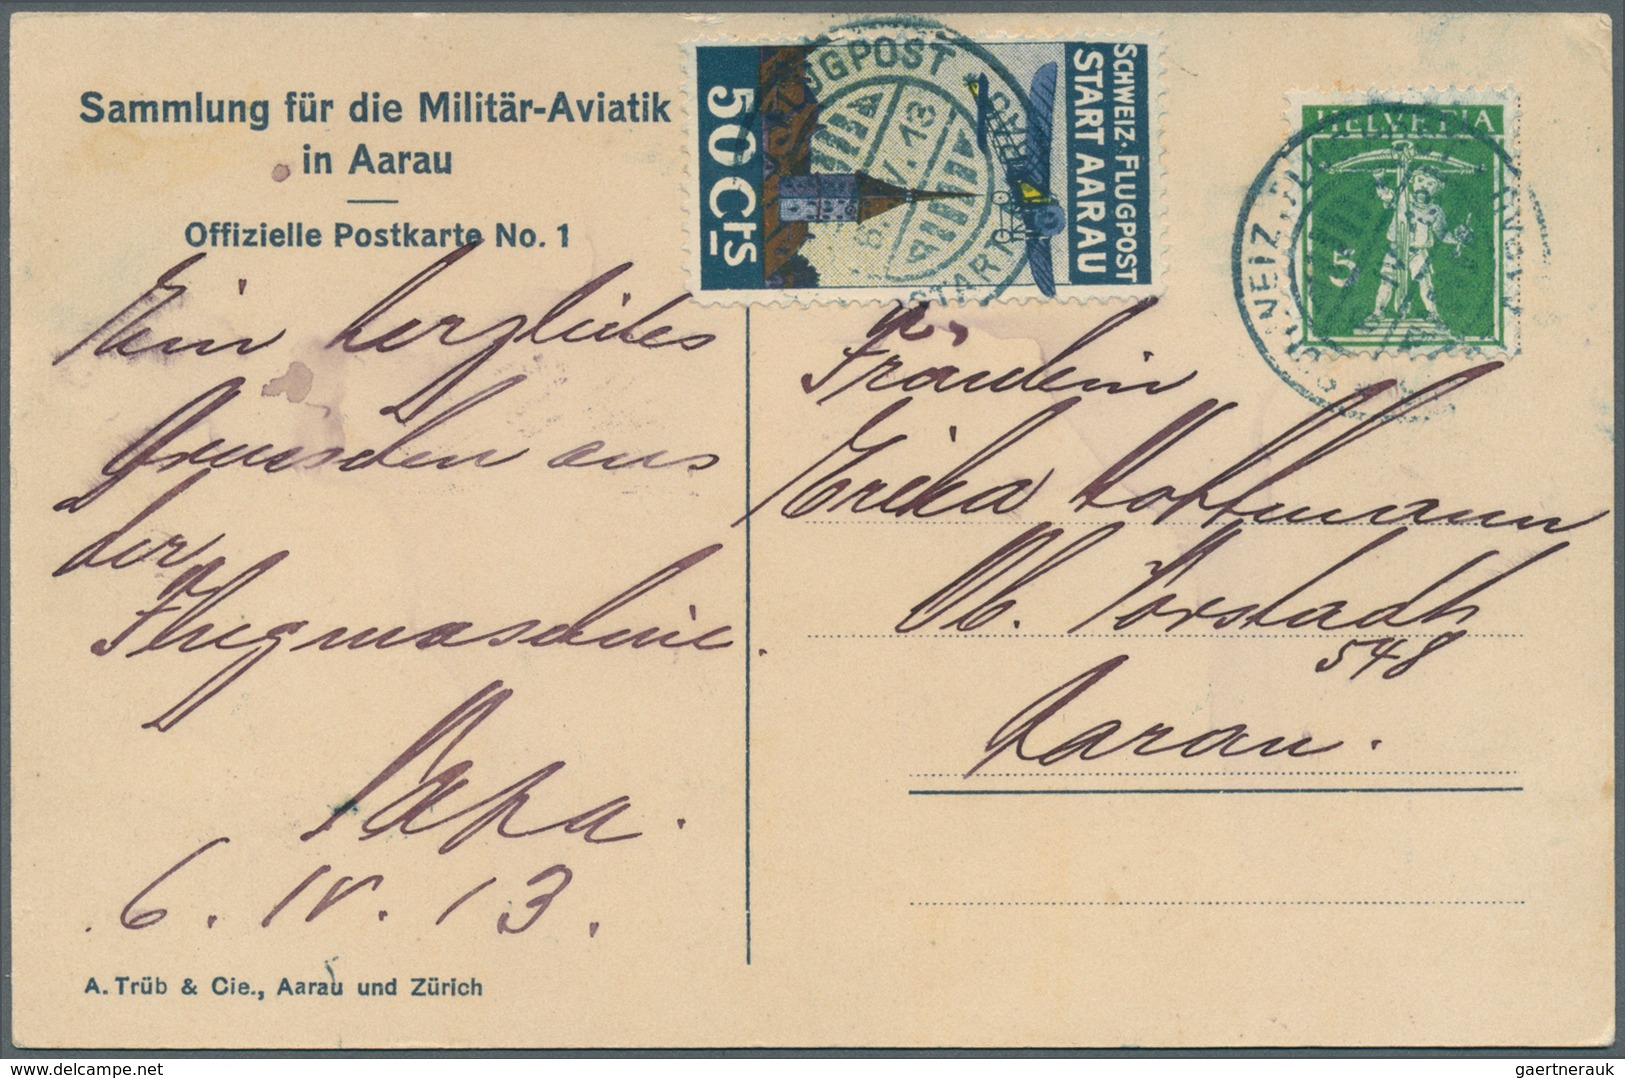 Sammlung für die Militär-Aviatik
in Aarau
Offizielle Postkarte No. 1
SCHWEIZ. FLUGPOST
START AARAU
50 Cts
FLUGPOST
START
HELVETIA
5
Ein herzliches
Gruesschen aus
der
Flugmaschine.
Papa.
6. IV. 13.
Fräulein
Erika Hoffmann
Ob. Vorstadt
548
Aarau.
A. Trüb & Cie., Aarau und Zürich
delcampe.net
gaertnerauk